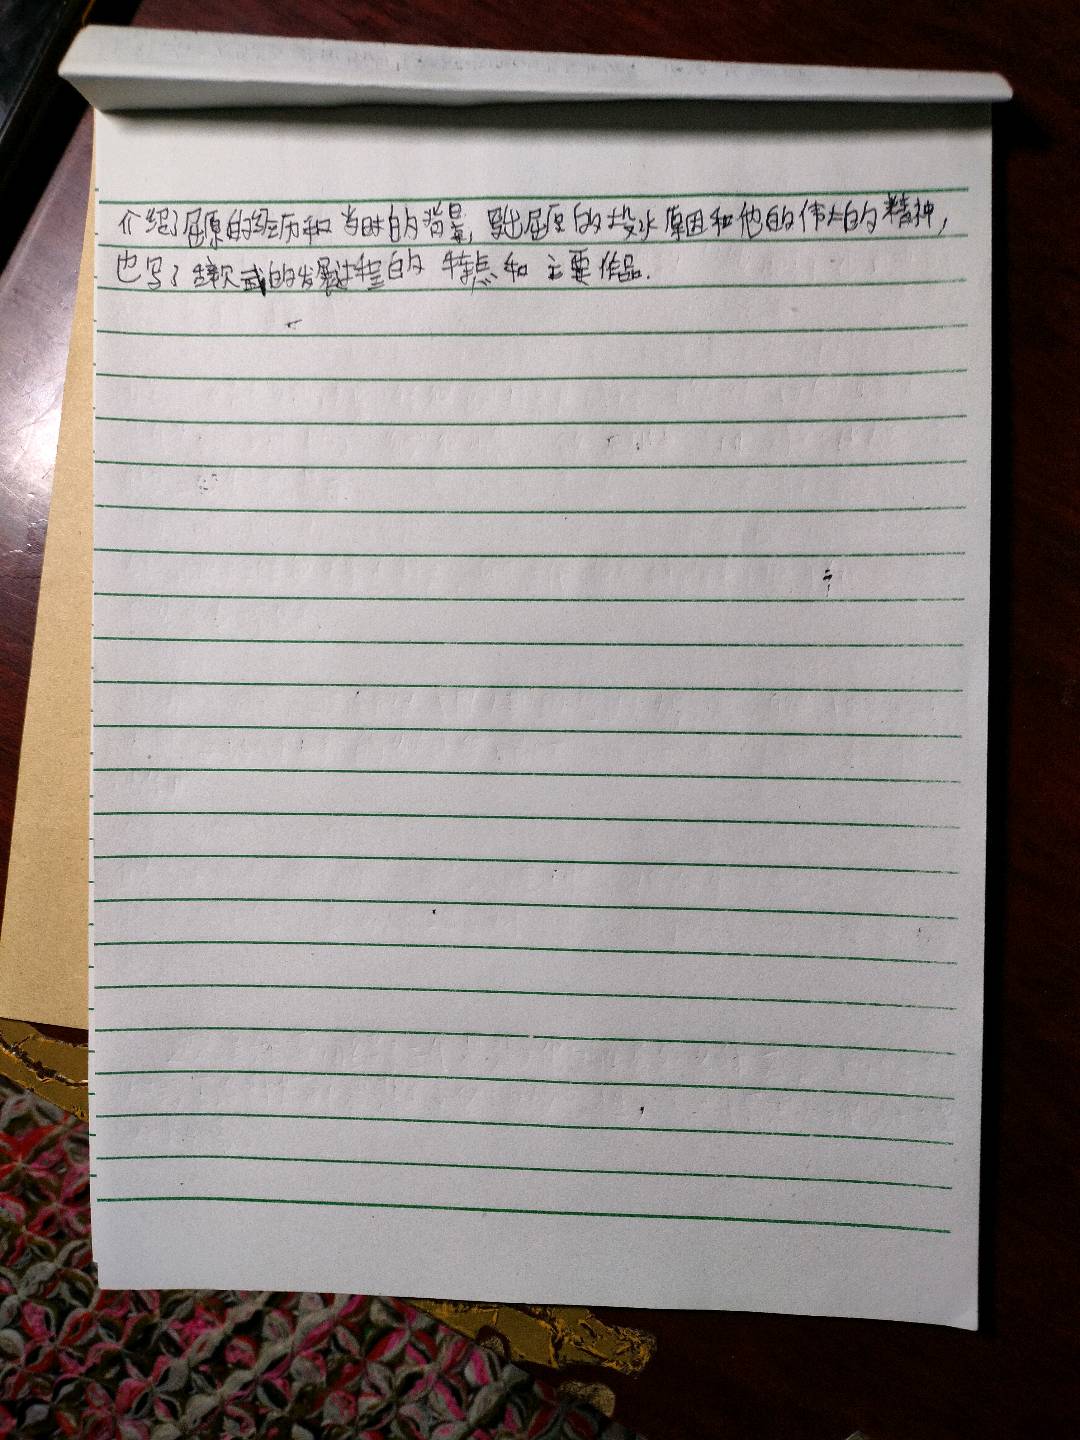 介绍了屈原的经历和当时的背景,写出屈原的投水原因和他的伟大的精神,
也写了辞赋的发展进程的特点和主要作品.